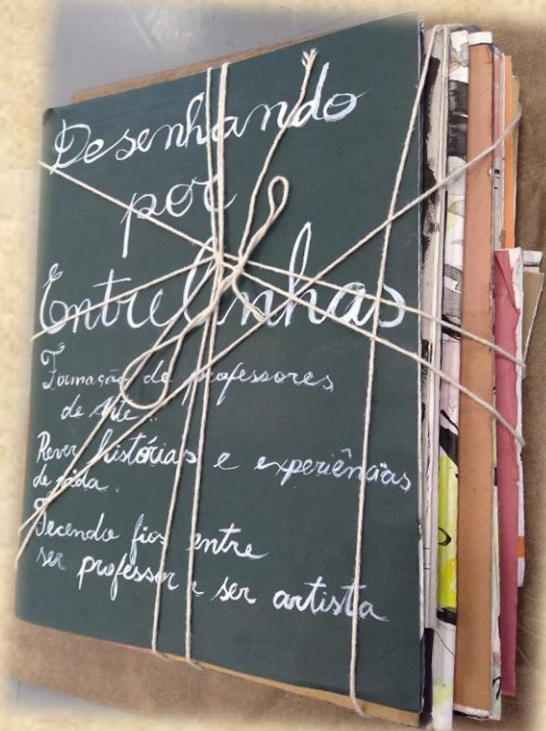 Desenhando
por
Entrelinhas
Formação de professores
de Arte..
Rever histórias e experiências
de vida.
Tecendo fios entre
ser professor e ser artista